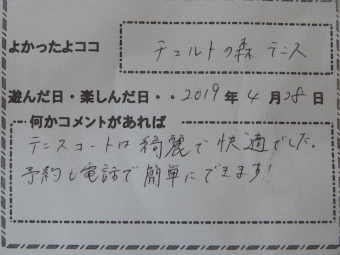 よかったよココ チェルトの森 テニス
遊んだ日・楽しんだ日・・2019年4月28日
何かコメントがあれば
テニスコートは綺麗で快適でした。
予約も電話で簡単にできます!